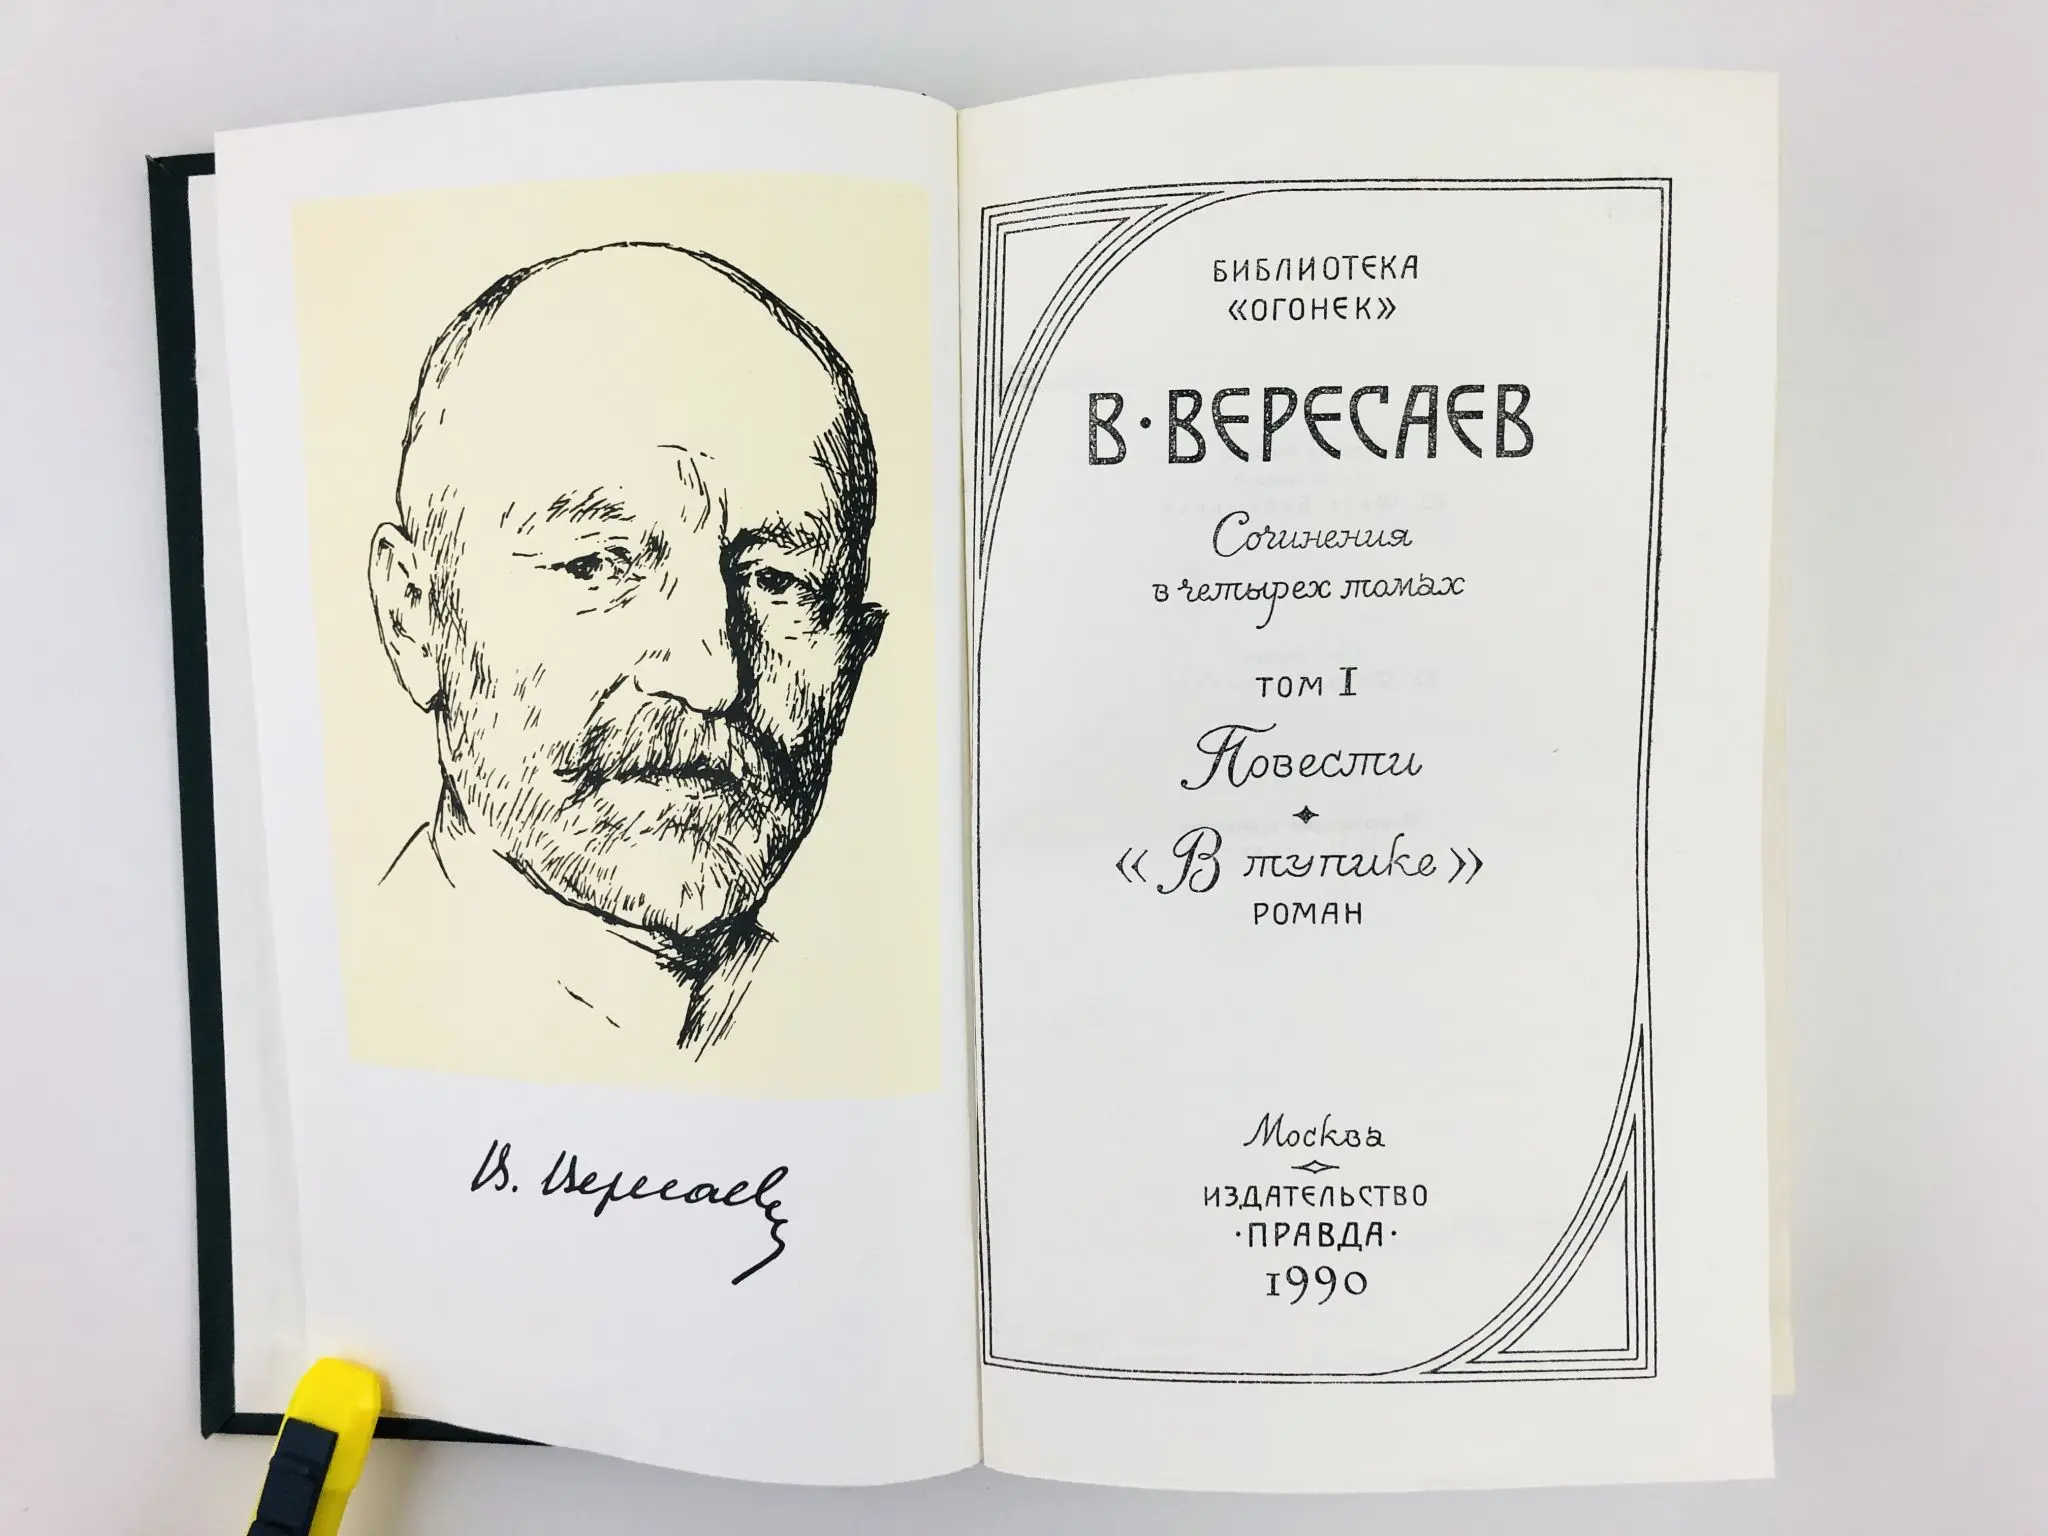 В. Вересаев
БИБЛИОТЕКА
«ОГОНЕК»
В·ВЕРЕСАЕВ
Сочинения
в четырех томах
ТОМ I
Повести
«В тупике»
РОМАН
Москва
ИЗДАТЕЛЬСТВО
·ПРАВДА·
1990